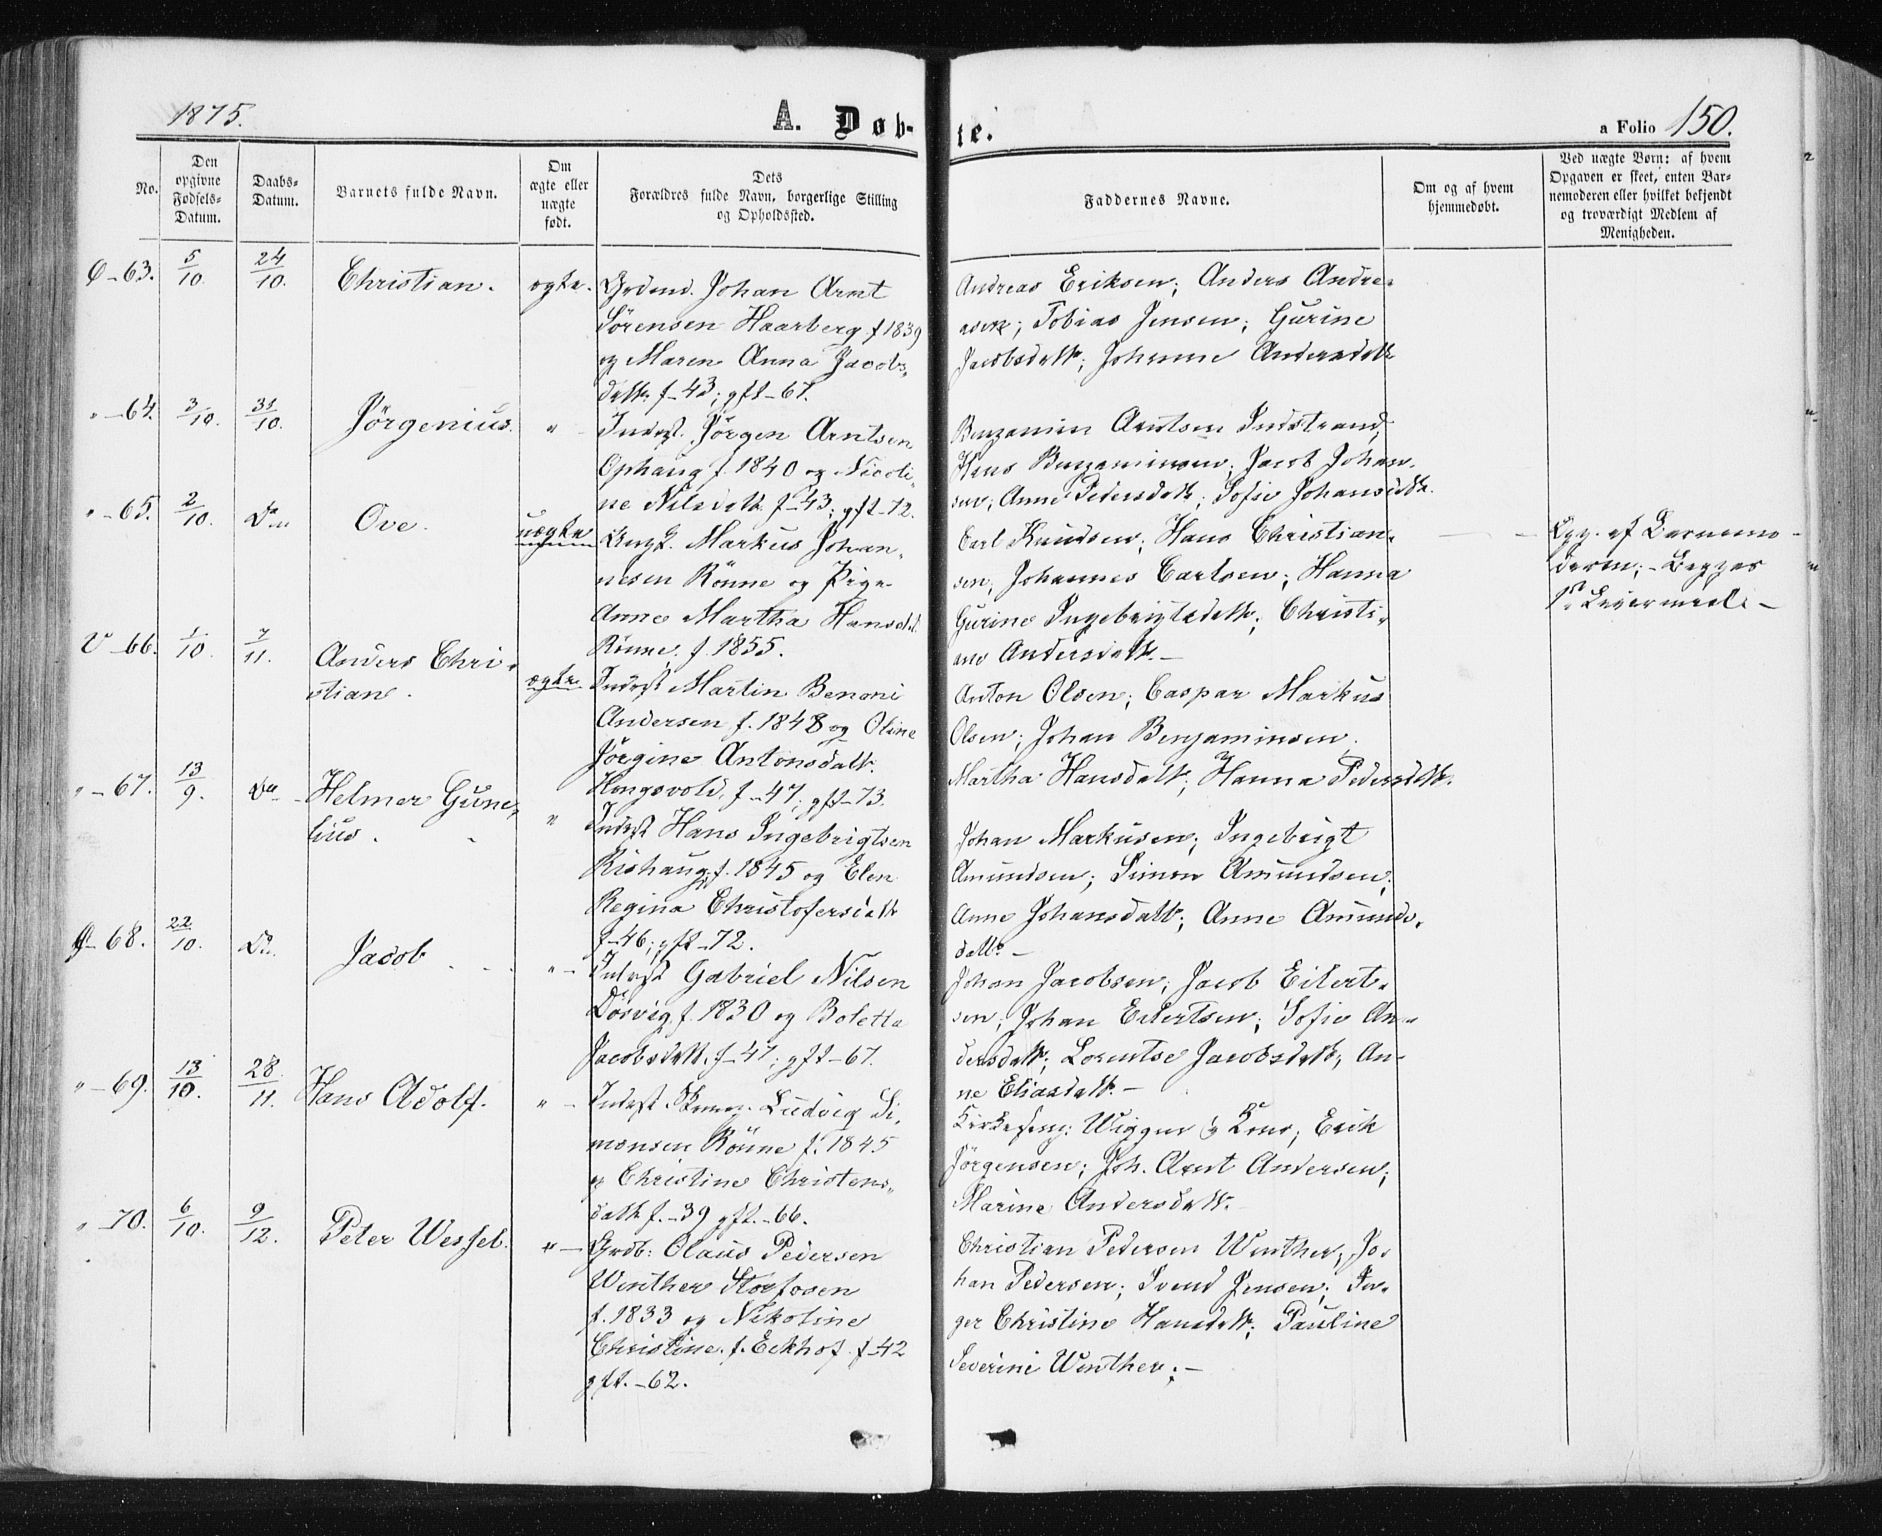 1875.
A. Døb-
te.
a Folio 150.
No.
Den opgivne Fødsels-Datum.
Daabs-Datum.
Barnets fulde Navn.
Om ægte eller uægte født.
Dets
Forældres fulde Navn, borgerlige Stilling
og Opholdssted.
Faddernes Navne.
Om og af hvem
hjemmedøbt.
Ved uægte Børn: af hvem
Opgaven er skeet, enten Bar-
nemoderen eller hvilket bekjendt
og troværdigt Medlem af
Menigheden.
Ø-63. 5/10. 24/10. Christian. ægte.
Grdmd. Johan Arnt
Sörensen Haarberg f 1839
og Maren Anna Jacobs-
datt. f-43; gft-67.
Andreas Eriksen; Anders Andre-
asen; Tobias Jensen; Gurine
Jacobsdatt; Johanne Andersdatt
"-64. 3/10. 31/10. Jörgenius. "
Inderst. Jörgen Arntsen
Ophaug f. 1840 og Nicoli-
ne Nilsdatt. f-43; gft-72.
Benjamin Arntsen Indstrand;
Benjaminsen; Jacob Johan-
sen; Anne Pedersdatt; Sofie Johansdatt.
"-65. 2/10. Do Ove. uægte
Ungk. Markus Johan-
nesen Rönne og Pige
Anne Martha Hansdt.
Rönne. f. 1855.
Carl Knudsen; Hans Christian-
sen; Johannes Carlsen; Hanna
Gurine Ingebrigtsdatt; Christi-
ane Andersdatt.-
Opg. af Barnemo-
deren; - Begges
1ste Leiermaal -
V-66. 1/10 7/11. Anders Chri-
stian. ægte
Inderst Martin Benoni
Andersen f. 1848 og Oline
Jörgine Antonsdatt.
Hongsvold. f-47; gft-73.
Anton Olsen; Caspar Markus
Olsen; Johan Benjaminsen.
Martha Hansdatt; Hanna Pedersdatt.
"-67. 13/9. Do Helmer Gune-
lius. "
Inderst Hans Ingebrigtsen
Rishaug f. 1845 og Elen
Regina Christofersdatt
f-46; gft-72.
Johan Markusen; Ingebrigt
Amundsen; Simon Amundsen;
Anne Johansdatt; Anne Amunds-
datt. -
Ø-68. 22/10. Do. Jacob "-
Inderst Gabriel Nilsen
Dösvig f. 1830 og Boletta
Jacobsdatt. f-47; gft-67.
Johan Jacobsen; Jacob Eilert-
sen; Johan Eilertsen; Sofie An-
dersdatt; Lorentse Jacobsdatt; An-
ne Eliasdatt. -
"-69. 13/10. 28/11. Hans Adolf. "-
Inderst Ludvig Si-
monsen Rönne f. 1845
og Christine Christens-
datt f.-39 gft.-66.
Kirkesang: Wigger Erik
Jörgensen; Joh. Arnt Andersen;
Marine Andersdatt.
"-70. 6/10. 9/12. Peter Wessel. "-
Grdb: Olaus Pedersen
Winther Storfosen
f. 1833 og Nikoline
Christine. f. Eckhof f-42
gft.-62.
Christian Pedersen Winther; Jo-
han Pedersen; Svend Jensen; In-
ger Christine Hansdatt; Pauline
Severine Winther; -